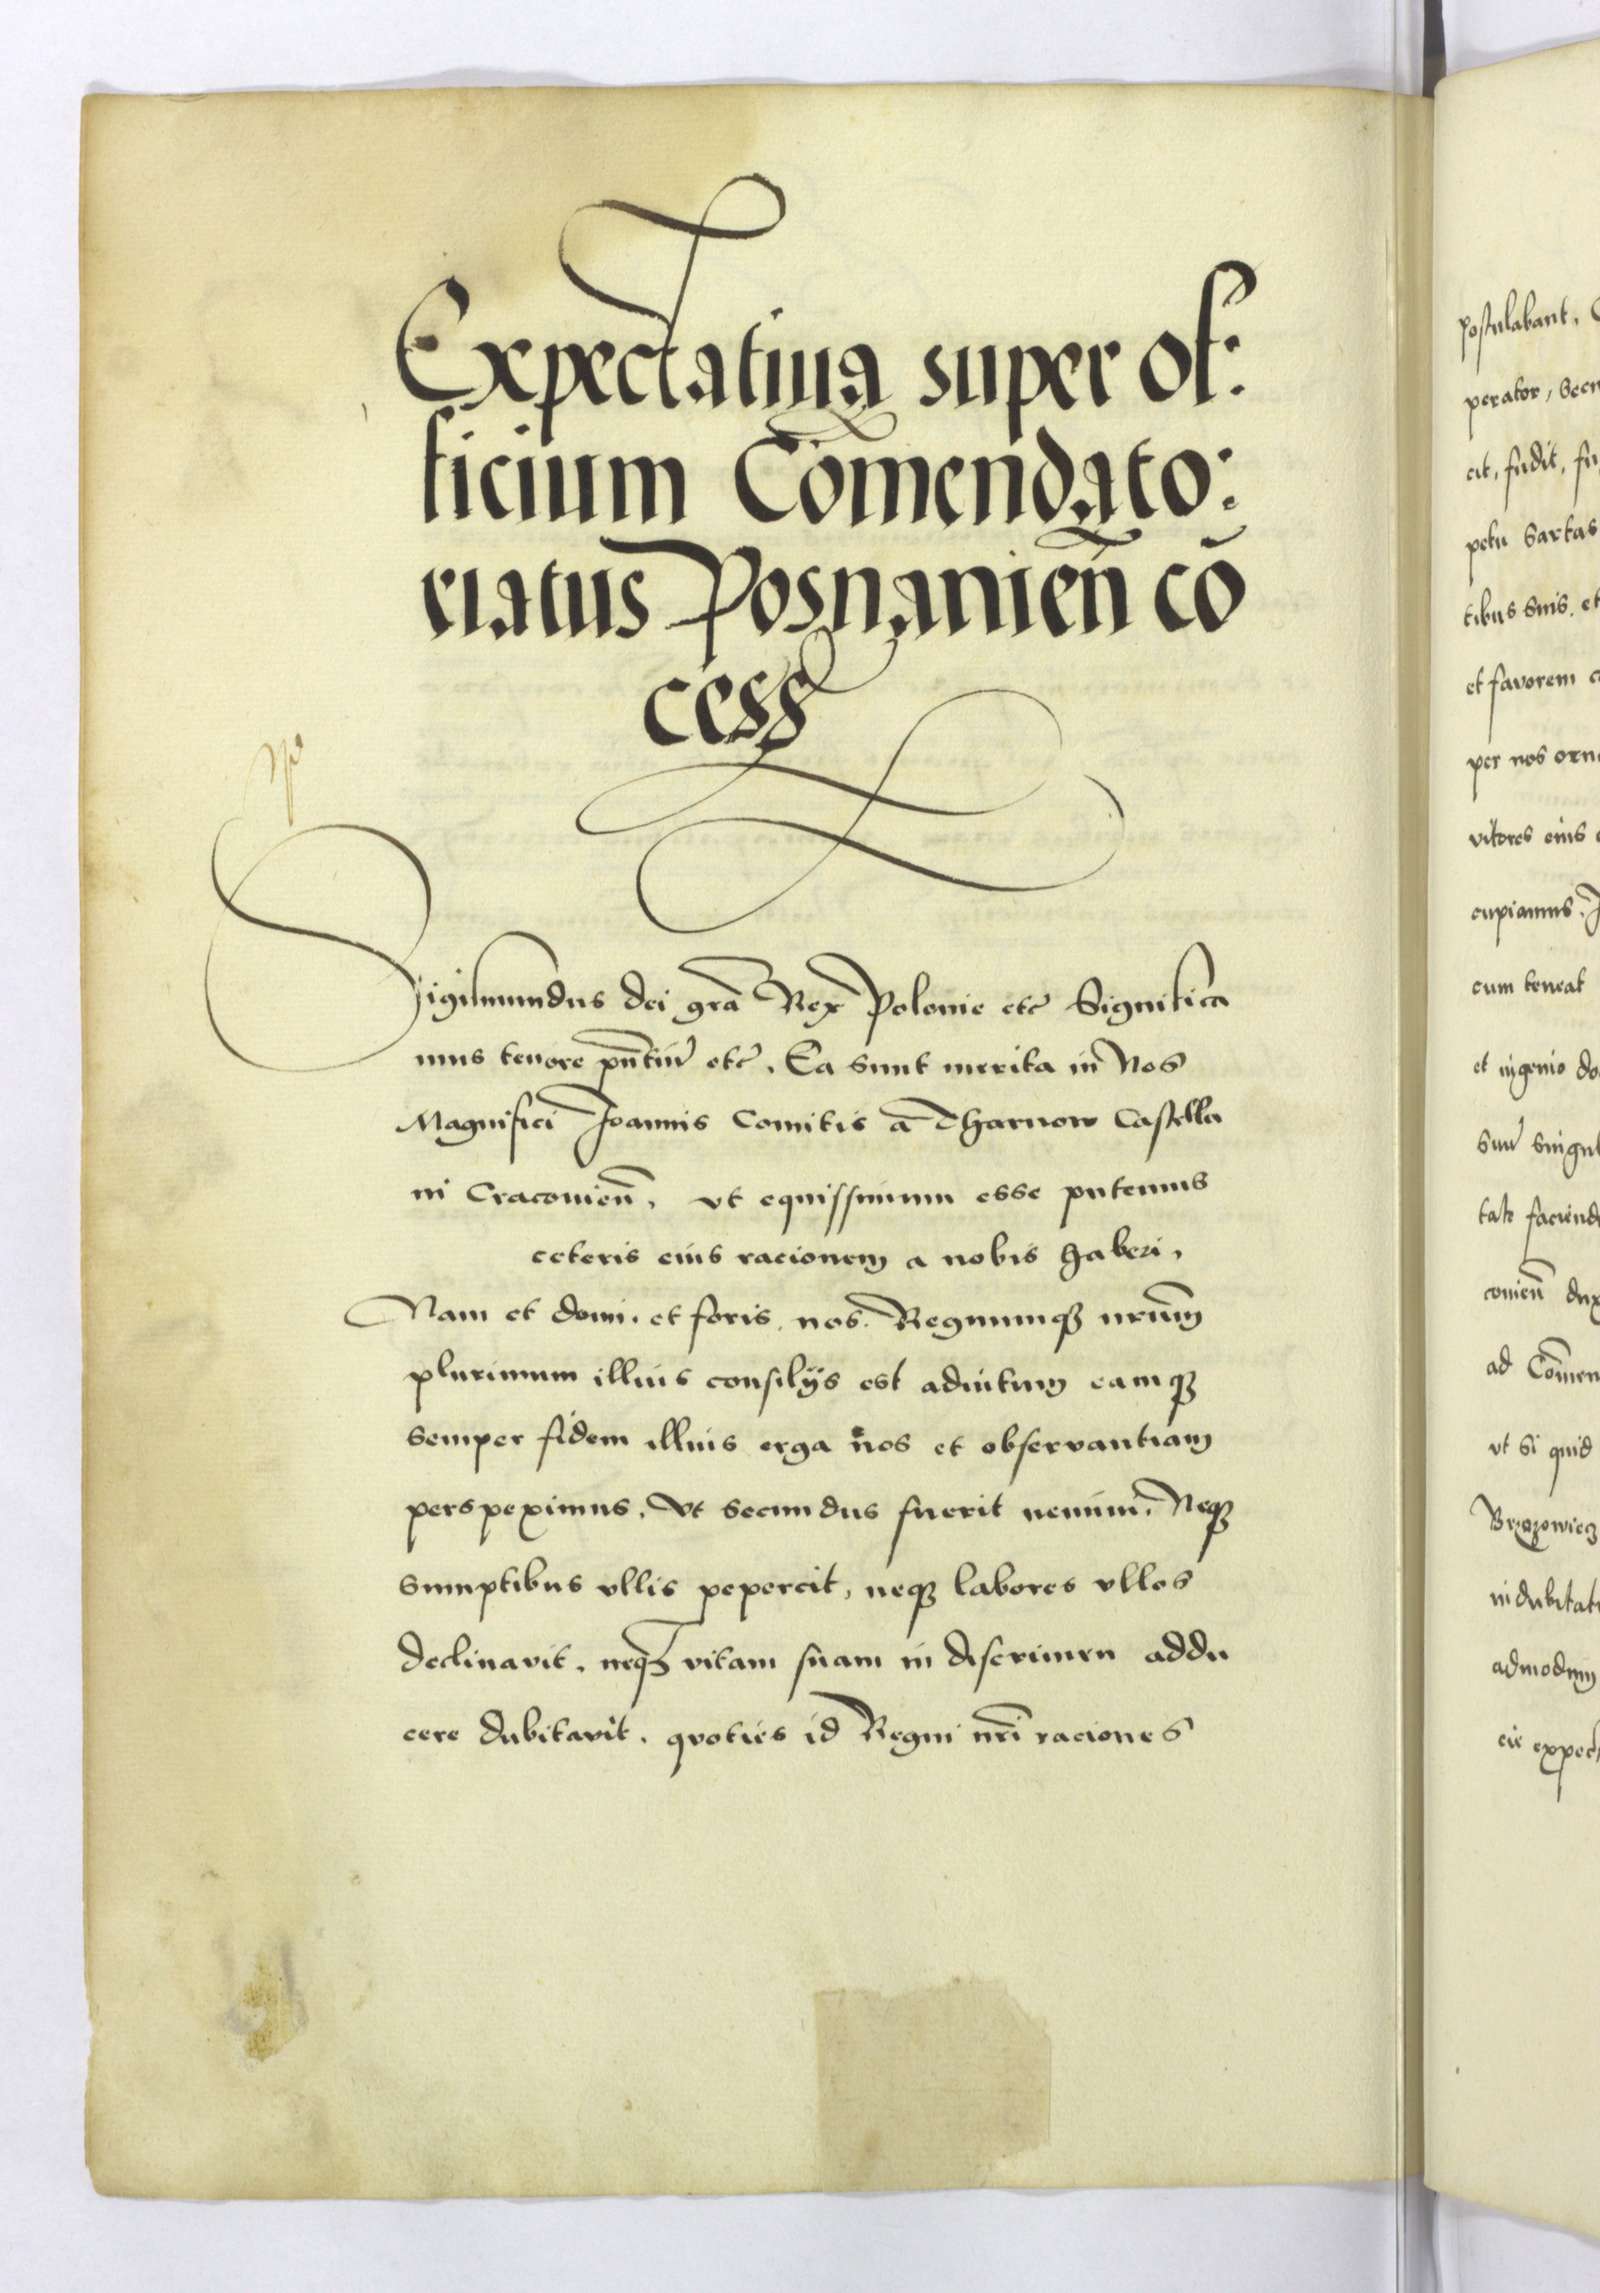 Expectatiua super of:
ficium Com̄endato:
riatus Posnanien̄ cō
cess
Sigismundus dei gr̄a Rex Polonie etc̄ Significa
mus tenore pn̄tiū etc̄. Ea sunt merita in Nos
Magnifici Joannis Comitis a Tharnow Castella
ni Cracovien̄. vt equissimum esse putemus
ceteris eius racionem a nobis haberi,
Nam et domi. et foris. nos. Regnumqꝫ nr̄um
plurimum illius consilijs est adiutum eamqꝫ
semper fidem illius erga nos et observantiam
perspeximus. Vt secundus fuerit nemini. Neqꝫ
sumptibus vllis pepercit, neqꝫ labores vllos
declinavit. neqꝫ vitam suam in discrimen addu
cere dubitavit. quoties id Regni nr̄i raciones
postulabant.
perator,
cit, fudit,
petu sartas
tibus suis. et
et favorem
per nos
vitores eius
cupiamus.
cum teneat
et ingenio
suū
tate
covien̄
ad
vt si quid
admodum